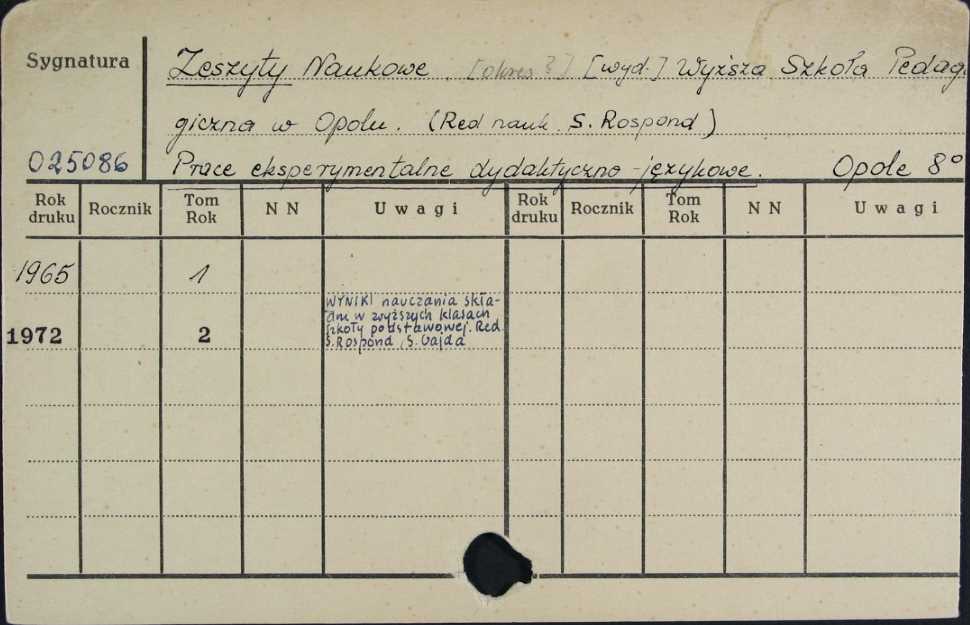 Sygnatura
Zeszyty Naukowe. [okres?] [wyd.] Wyższa Szkoła Pedago
giczna w Opolu. (Red nauk. S. Rospond)
025086 Prace eksperymentalne dydaktyczno-językowe. Opole 8°
Rok druku Rocznik Tom Rok NN Uwagi Rok druku Rocznik Tom Rok NN Uwagi
1965 1
WYNIKI nauczania skła-
dni w wyższych klasach
1972 2 szkoły podstawowej. Red.
S. Rospond, S. Gajda